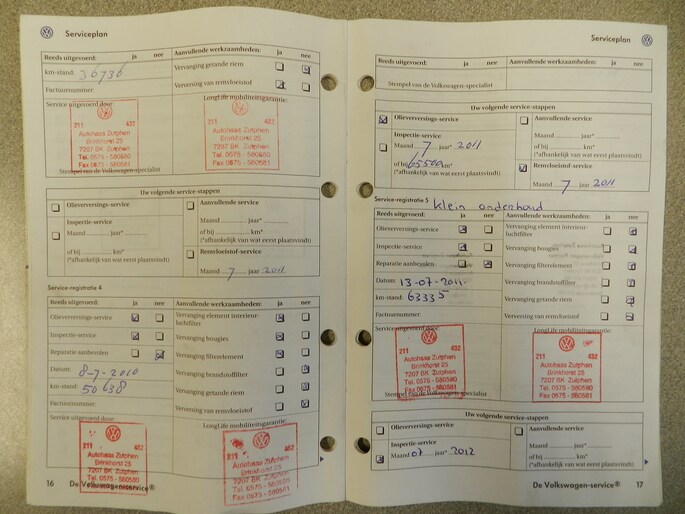 Serviceplan
Reeds uitgevoerd: ja nee
km-stand: 36736
Factuurnummer:
Service uitgevoerd door:
211 432
Autohaas Zutphen
Brinkhorst 25
7207 BK Zutphen
Tel. 0575 - 580580
Fax 0575 - 580581
Stempel van de Volkswagen-specialist
Aanvullende werkzaamheden: ja nee
Vervanging getande riem
Verversing van remvloeistof
LongLife mobiliteitsgarantie:
211 432
Autohaas Zutphen
Brinkhorst 25
7207 BK Zutphen
Tel. 0575 - 580580
Fax 0575 - 580581
Uw volgende service-stappen
Olieverversings-service
Inspectie-service
Maand jaar*
of bij km*
(*afhankelijk van wat eerst plaatsvindt)
Aanvullende service
Maand jaar*
of bij km*
(*afhankelijk van wat eerst plaatsvindt)
Remvloeistof-service
Maand 7 jaar 2011
Service-registratie 4
Reeds uitgevoerd: ja nee
Olieverversings-service
Inspectie-service
Reparatie aanbevolen
Datum: 8-7-2010
km-stand: 50638
Factuurnummer:
Service uitgevoerd door:
211 432
Autohaas Zutphen
Brinkhorst 25
7207 BK Zutphen
Tel. 0575 - 580580
Aanvullende werkzaamheden: ja nee
Vervanging element interieur-
luchtfilter
Vervanging bougies
Vervanging filterelement
Vervanging brandstoffilter
Vervanging getande riem
Verversing van remvloeistof
LongLife mobiliteitsgarantie:
211 432
Autohaas Zutphen
Brinkhorst 25
7207 BK Zutphen
Tel. 0575 - 580580
Fax 0575 - 580581
16 De Volkswagen-service®
Serviceplan
Reeds uitgevoerd: ja nee
Aanvullende werkzaamheden: ja nee
Stempel van de Volkswagen-specialist
Uw volgende service-stappen
Olieverversings-service
Inspectie-service
Maand 7 jaar 2011
of bij 65500 km*
(*afhankelijk van wat eerst plaatsvindt)
Aanvullende service
Maand jaar*
of bij km*
(*afhankelijk van wat eerst plaatsvindt)
Remvloeistof-service
Maand 7 jaar 2011
Service-registratie 5 klein onderhoud
Reeds uitgevoerd: ja nee
Olieverversings-service
Inspectie-service
Reparatie aanbevolen
Datum: 13-07-2011
km-stand: 63335
Factuurnummer:
Service uitgevoerd door:
211 432
Autohaas Zutphen
Brinkhorst 25
7207 BK Zutphen
Tel. 0575 - 580580
Fax 0575 - 580581
Stempel van de Volkswagen-specialist
Aanvullende werkzaamheden: ja nee
Vervanging element interieur-
luchtfilter
Vervanging bougies
Vervanging filterelement
Vervanging brandstoffilter
Vervanging getande riem
Verversing van remvloeistof
LongLife mobiliteitsgarantie:
211 432
Autohaas Zutphen
Brinkhorst 25
7207 BK Zutphen
Tel. 0575 - 580580
Fax 0575 - 580581
Uw volgende service-stappen
Olieverversings-service
Inspectie-service
Maand 07 jaar 2012
Aanvullende service
Maand jaar*
of bij km*
(*afhankelijk van wat eerst plaatsvindt)
De Volkswagen-service® 17